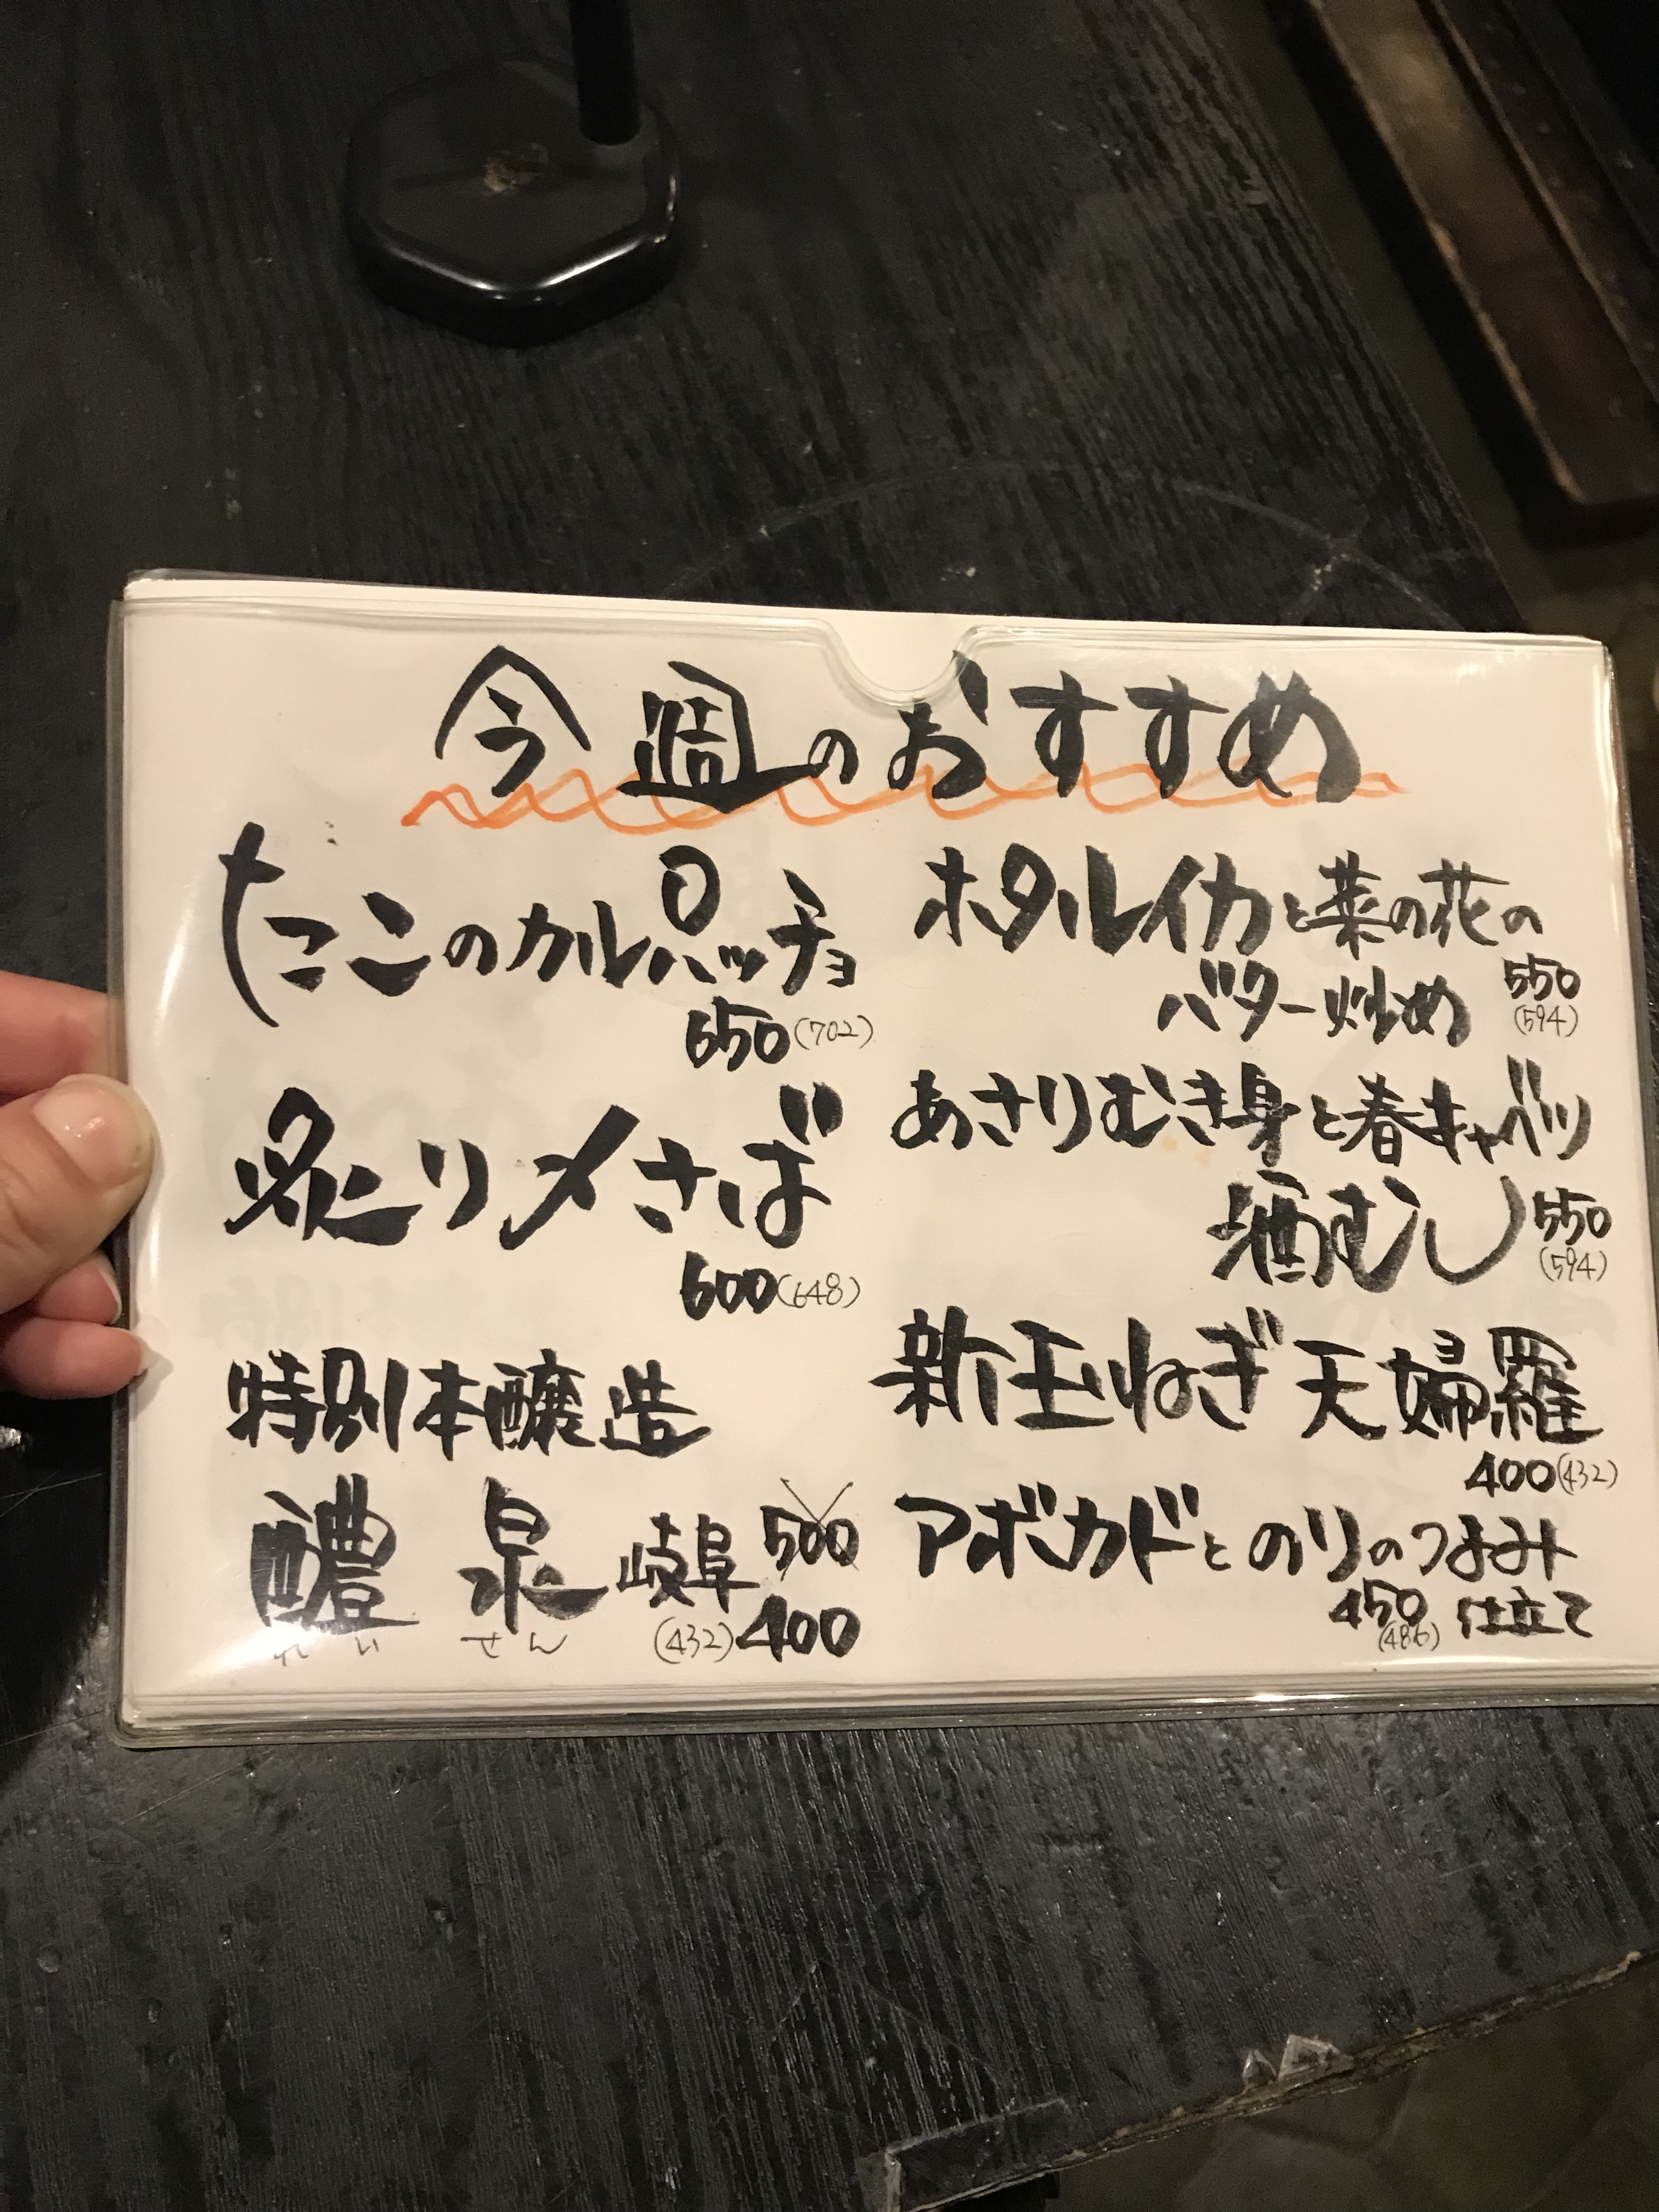 今週のおすすめ
たこのカルパッチョ
650(702)
炙り〆さば
600(648)
特別本醸造
醴泉 岐阜 500
れいせん (432) 400
ホタルイカと菜の花の
バター炒め 550
(594)
あさりむき身と春キャベツ
酒むし 550
(594)
新玉ねぎ天婦羅
400(432)
アボカドとのりのつまみ
450 仕立て
(486)